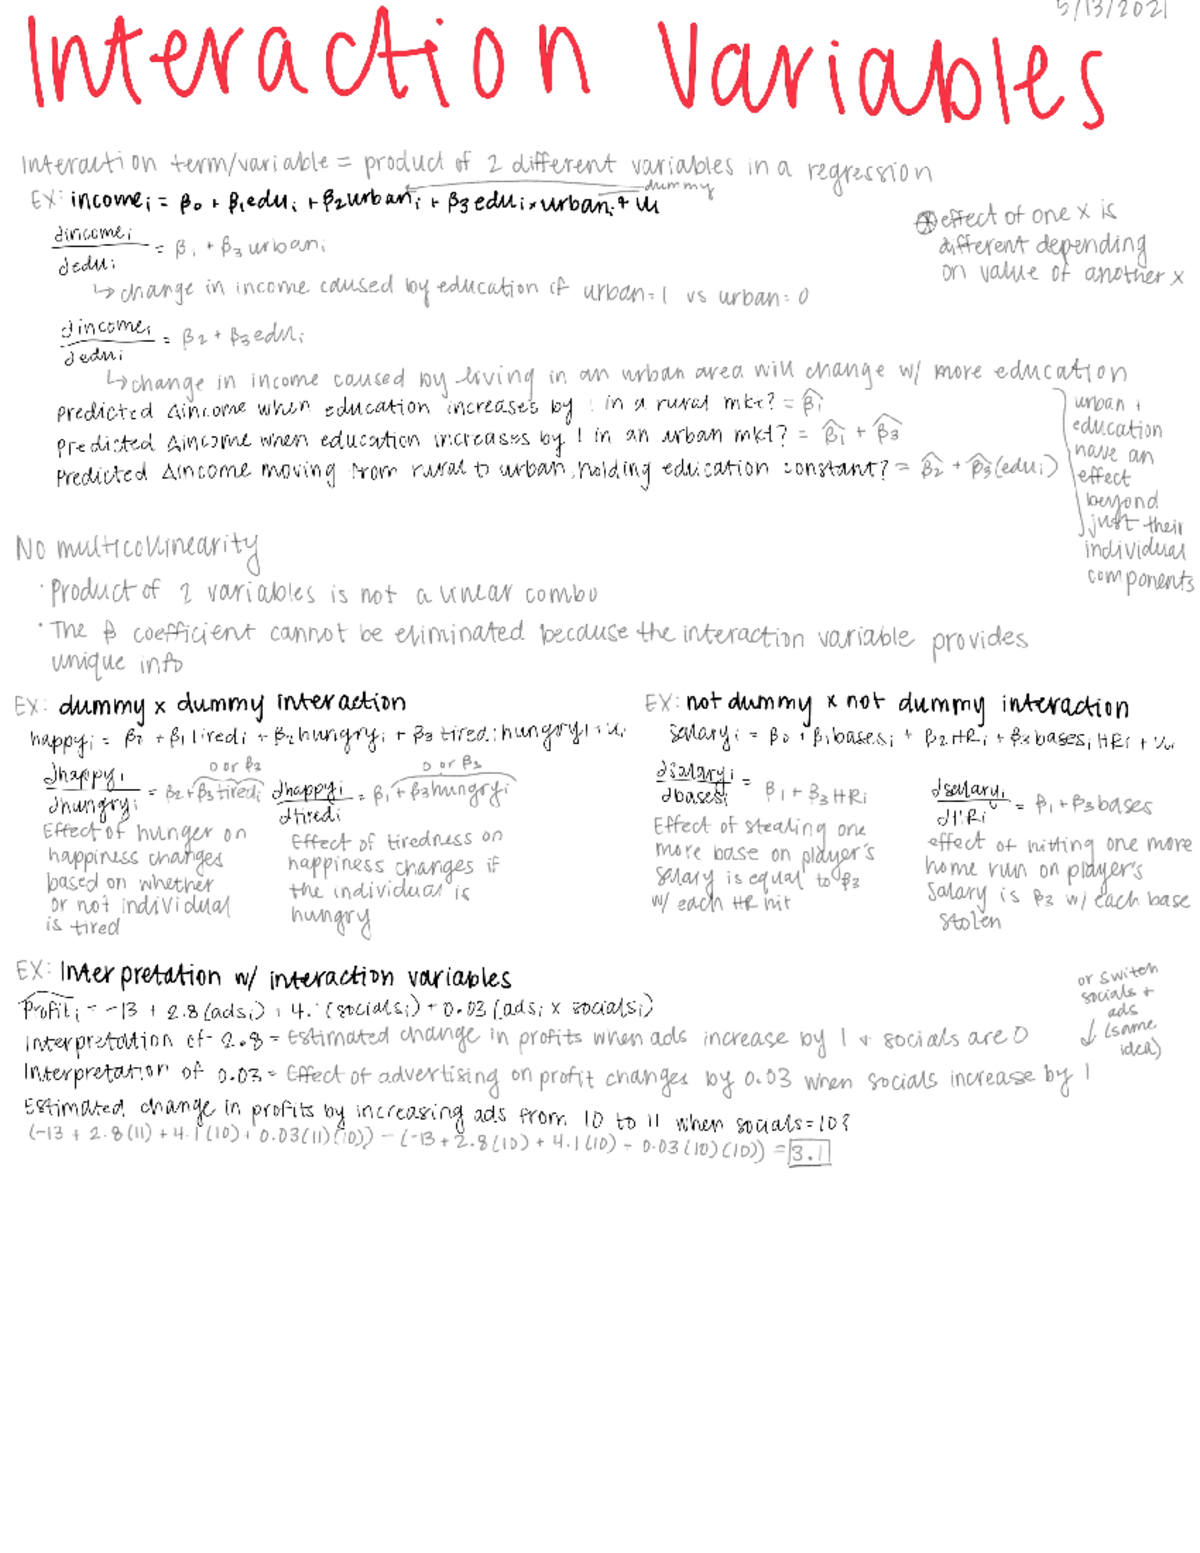 5/13/2021
Interaction Variables
Interaction term/variable = product of 2 different variables in a regression
dummy
EX: incomeᵢ = β₀ + β₁eduᵢ + β₂urbanᵢ + β₃eduᵢ × urbanᵢ + uᵢ
∂incomeᵢ/∂eduᵢ = β₁ + β₃urbanᵢ
↳ change in income caused by education if urban=1 vs urban=0
⊛ effect of one x is
different depending
on value of another x
∂incomeᵢ/∂eduᵢ = β₂ + β₃eduᵢ
↳ change in income caused by living in an urban area will change w/ more education
Predicted Δincome when education increases by 1 in a rural mkt? = β̂₁
Predicted Δincome when education increases by 1 in an urban mkt? = β̂₁ + β̂₃
Predicted Δincome moving from rural to urban, holding education constant? = β̂₂ + β̂₃(eduᵢ)
urban +
education
have an
effect
beyond
just their
individual
components
No multicollinearity
· Product of 2 variables is not a linear combo
· The β coefficient cannot be eliminated because the interaction variable provides
unique info
EX: dummy x dummy interaction
happyᵢ = β₀ + β₁tiredᵢ + β₂hungryᵢ + β₃tiredᵢhungryᵢ + uᵢ
0 or β₃
∂happyᵢ/∂hungryᵢ = β₂ + β₃tiredᵢ
Effect of hunger on
happiness changes
based on whether
or not individual
is tired
0 or β₃
∂happyᵢ/∂tiredᵢ = β₁ + β₃hungryᵢ
Effect of tiredness on
happiness changes if
the individual is
hungry
EX: not dummy x not dummy interaction
salaryᵢ = β₀ + β₁basesᵢ + β₂HRᵢ + β₃basesᵢHRᵢ + uᵢ
∂salaryᵢ/∂basesᵢ = β₁ + β₃HRᵢ
Effect of stealing one
more base on player's
salary is equal to β₃
w/ each HR hit
∂salaryᵢ/∂HRᵢ = β₁ + β₃bases
effect of hitting one more
home run on player's
salary is β₃ w/ each base
stolen
EX: Interpretation w/ interaction variables
Profitᵢ = -13 + 2.8(adsᵢ) + 4.1(socialsᵢ) + 0.03(adsᵢ x socialsᵢ)
Interpretation of 2.8 = Estimated change in profits when ads increase by 1 + socials are 0
Interpretation of 0.03 = Effect of advertising on profit changes by 0.03 when socials increase by 1
or switch
socials +
ads
↓ (same
idea)
Estimated change in profits by increasing ads from 10 to 11 when socials=10?
(-13 + 2.8(11) + 4.1(10) + 0.03(11)(10)) - (-13 + 2.8(10) + 4.1(10) - 0.03(10)(10)) = 3.1